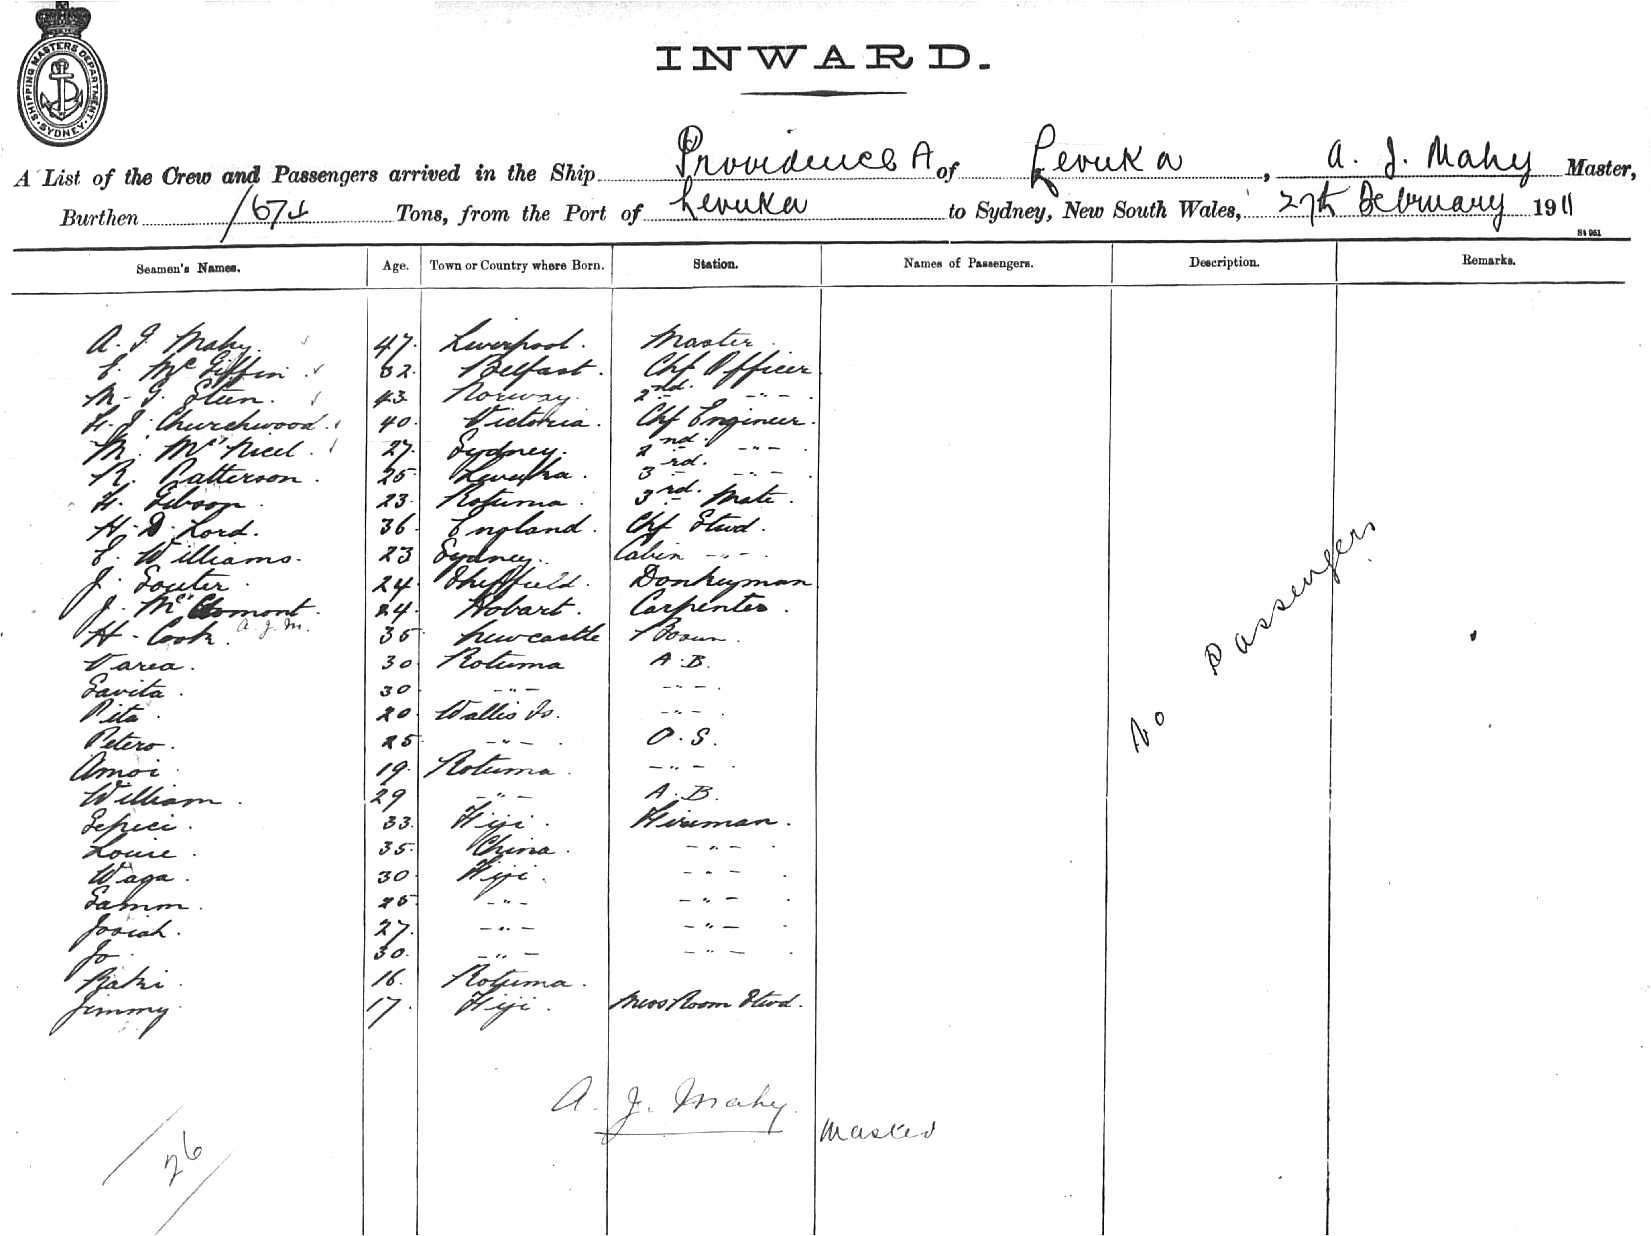 SHIPPING MASTERS DEPARTMENT
SYDNEY
INWARD.
A List of the Crew and Passengers arrived in the Ship Providence A of Levuka, A. J. Mahy Master,
Burthen Tons, from the Port of Levuka to Sydney, New South Wales, 27th February 1911
St 961
Seamen's Names. Age. Town or Country where Born. Station. Names of Passengers. Description. Remarks.
A. J. Mahy. 47. Liverpool. Master.
E. McGiffin. 32. Belfast. Chf Officer
M. G. Steen. 43 Norway. 2nd. -"-
H. J. Churchwood. 40. Victoria. Chf Engineer.
M. McNicol. 27. Sydney. 2nd. -"-
R. Patterson. 25 Levuka. 3rd. -"-
H. Gibson. 23. Rotuma. 3rd. Mate.
H. D. Lord. 36 England. Chf Stwd.
E. Williams. 23 Sydney. Cabin -"-
J. Souter. 24 Sheffield. Donkeyman
J. McClomont. 24. Hobart. Carpenter.
H. Cook. A. J. M. 35 Newcastle Bosun.
Varea. 30 Rotuma A.B.
Savita. 30 -"- -"-
Pita. 20 Wallis Is. -"-
Petero. 25 -"- O.S.
Amoi 19. Rotuma. -"-
William. 29 -"- A.B.
Sepeci. 33. Fiji. Fireman.
Louie. 35. China. -"-
Waga. 30 Fiji. -"-
Samm. 25 -"- -"-
Josiah. 27. -"- -"-
Jo. 30. -"- -"-
Raki. 16. Rotuma.
Jimmy 17. Fiji. Mess Room Stwd.
No Passengers
A. J. Mahy.
Master
26